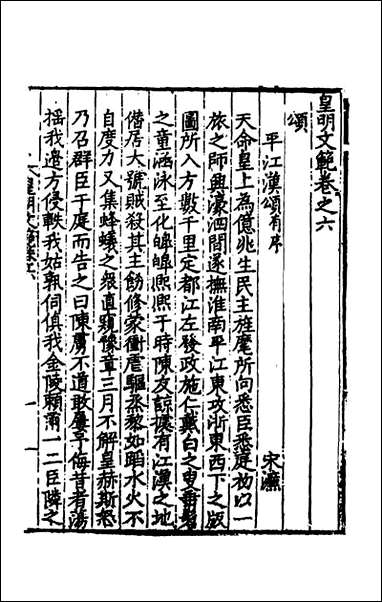 皇明文範卷之六
頌
平江漢頌有序
宋濂
天命皇上為億兆生民主旌麾所向悉臣悉庭初以一
旅之師興濠泗間遂撫淮南平江東攻浙東西下之版
圖所入方數千里定都江左發政施仁戴白之叟垂髫
之童涵泳至化皥皥熙熙于時陳友諒據有江漢之地
僭居大號賊殺其主飭修蒙衝虐驅烝黎如蹈水火不
自度力又集蜂蟻之衆直窺豫章三月不解皇赫斯怒
乃召群臣于庭而告之曰陳虜不道敢屢予侮昔者蕩
揺我邊方侵軼我姑孰伺偵我金陵賴爾一二臣隣之
皇明文範卷六
一